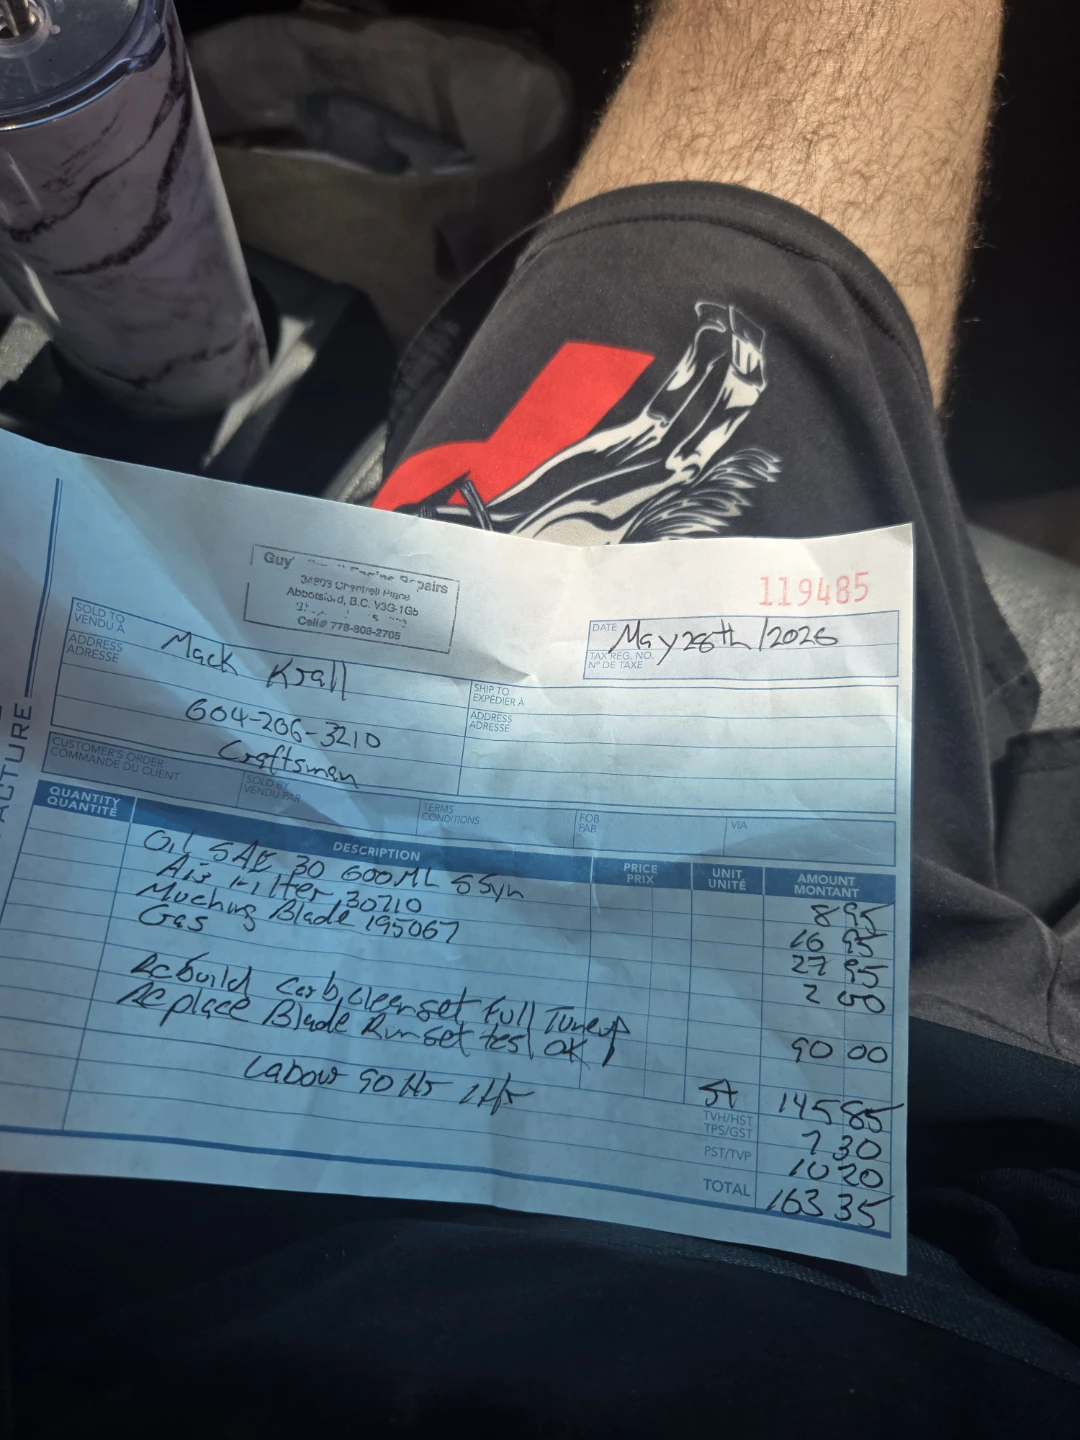 Guy' Repairs
Abbotsford, B.C. V3G-1G5
Cell# 778-808-2705
119485
SOLD TO
VENDU À
Mack Krall
ADDRESS
ADRESSE
604-206-3210
Craftsman
DATE May 28th/2026
TAX REG. NO.
N° DE TAXE
SHIP TO
EXPÉDIER À
ADDRESS
ADRESSE
CUSTOMER'S ORDER
COMMANDE DU CLIENT
SOLD BY
VENDU PAR
TERMS
CONDITIONS
FOB
FAB
VIA
QUANTITY
QUANTITÉ
DESCRIPTION
PRICE
PRIX
UNIT
UNITÉ
AMOUNT
MONTANT
Oil SAE 30 600ML SSyn 8 95
Air Filter 30710 16 95
Muching Blade 195067 27 95
Gas 2 00
Rebuild Carb, clean set Full Tuneup
Replace Blade Run set test OK! 90 00
Labour 90 Hr 1 Hr
St 145 85
TVH/HST
TPS/GST
7 30
PST/TVP 10 20
TOTAL 163 35